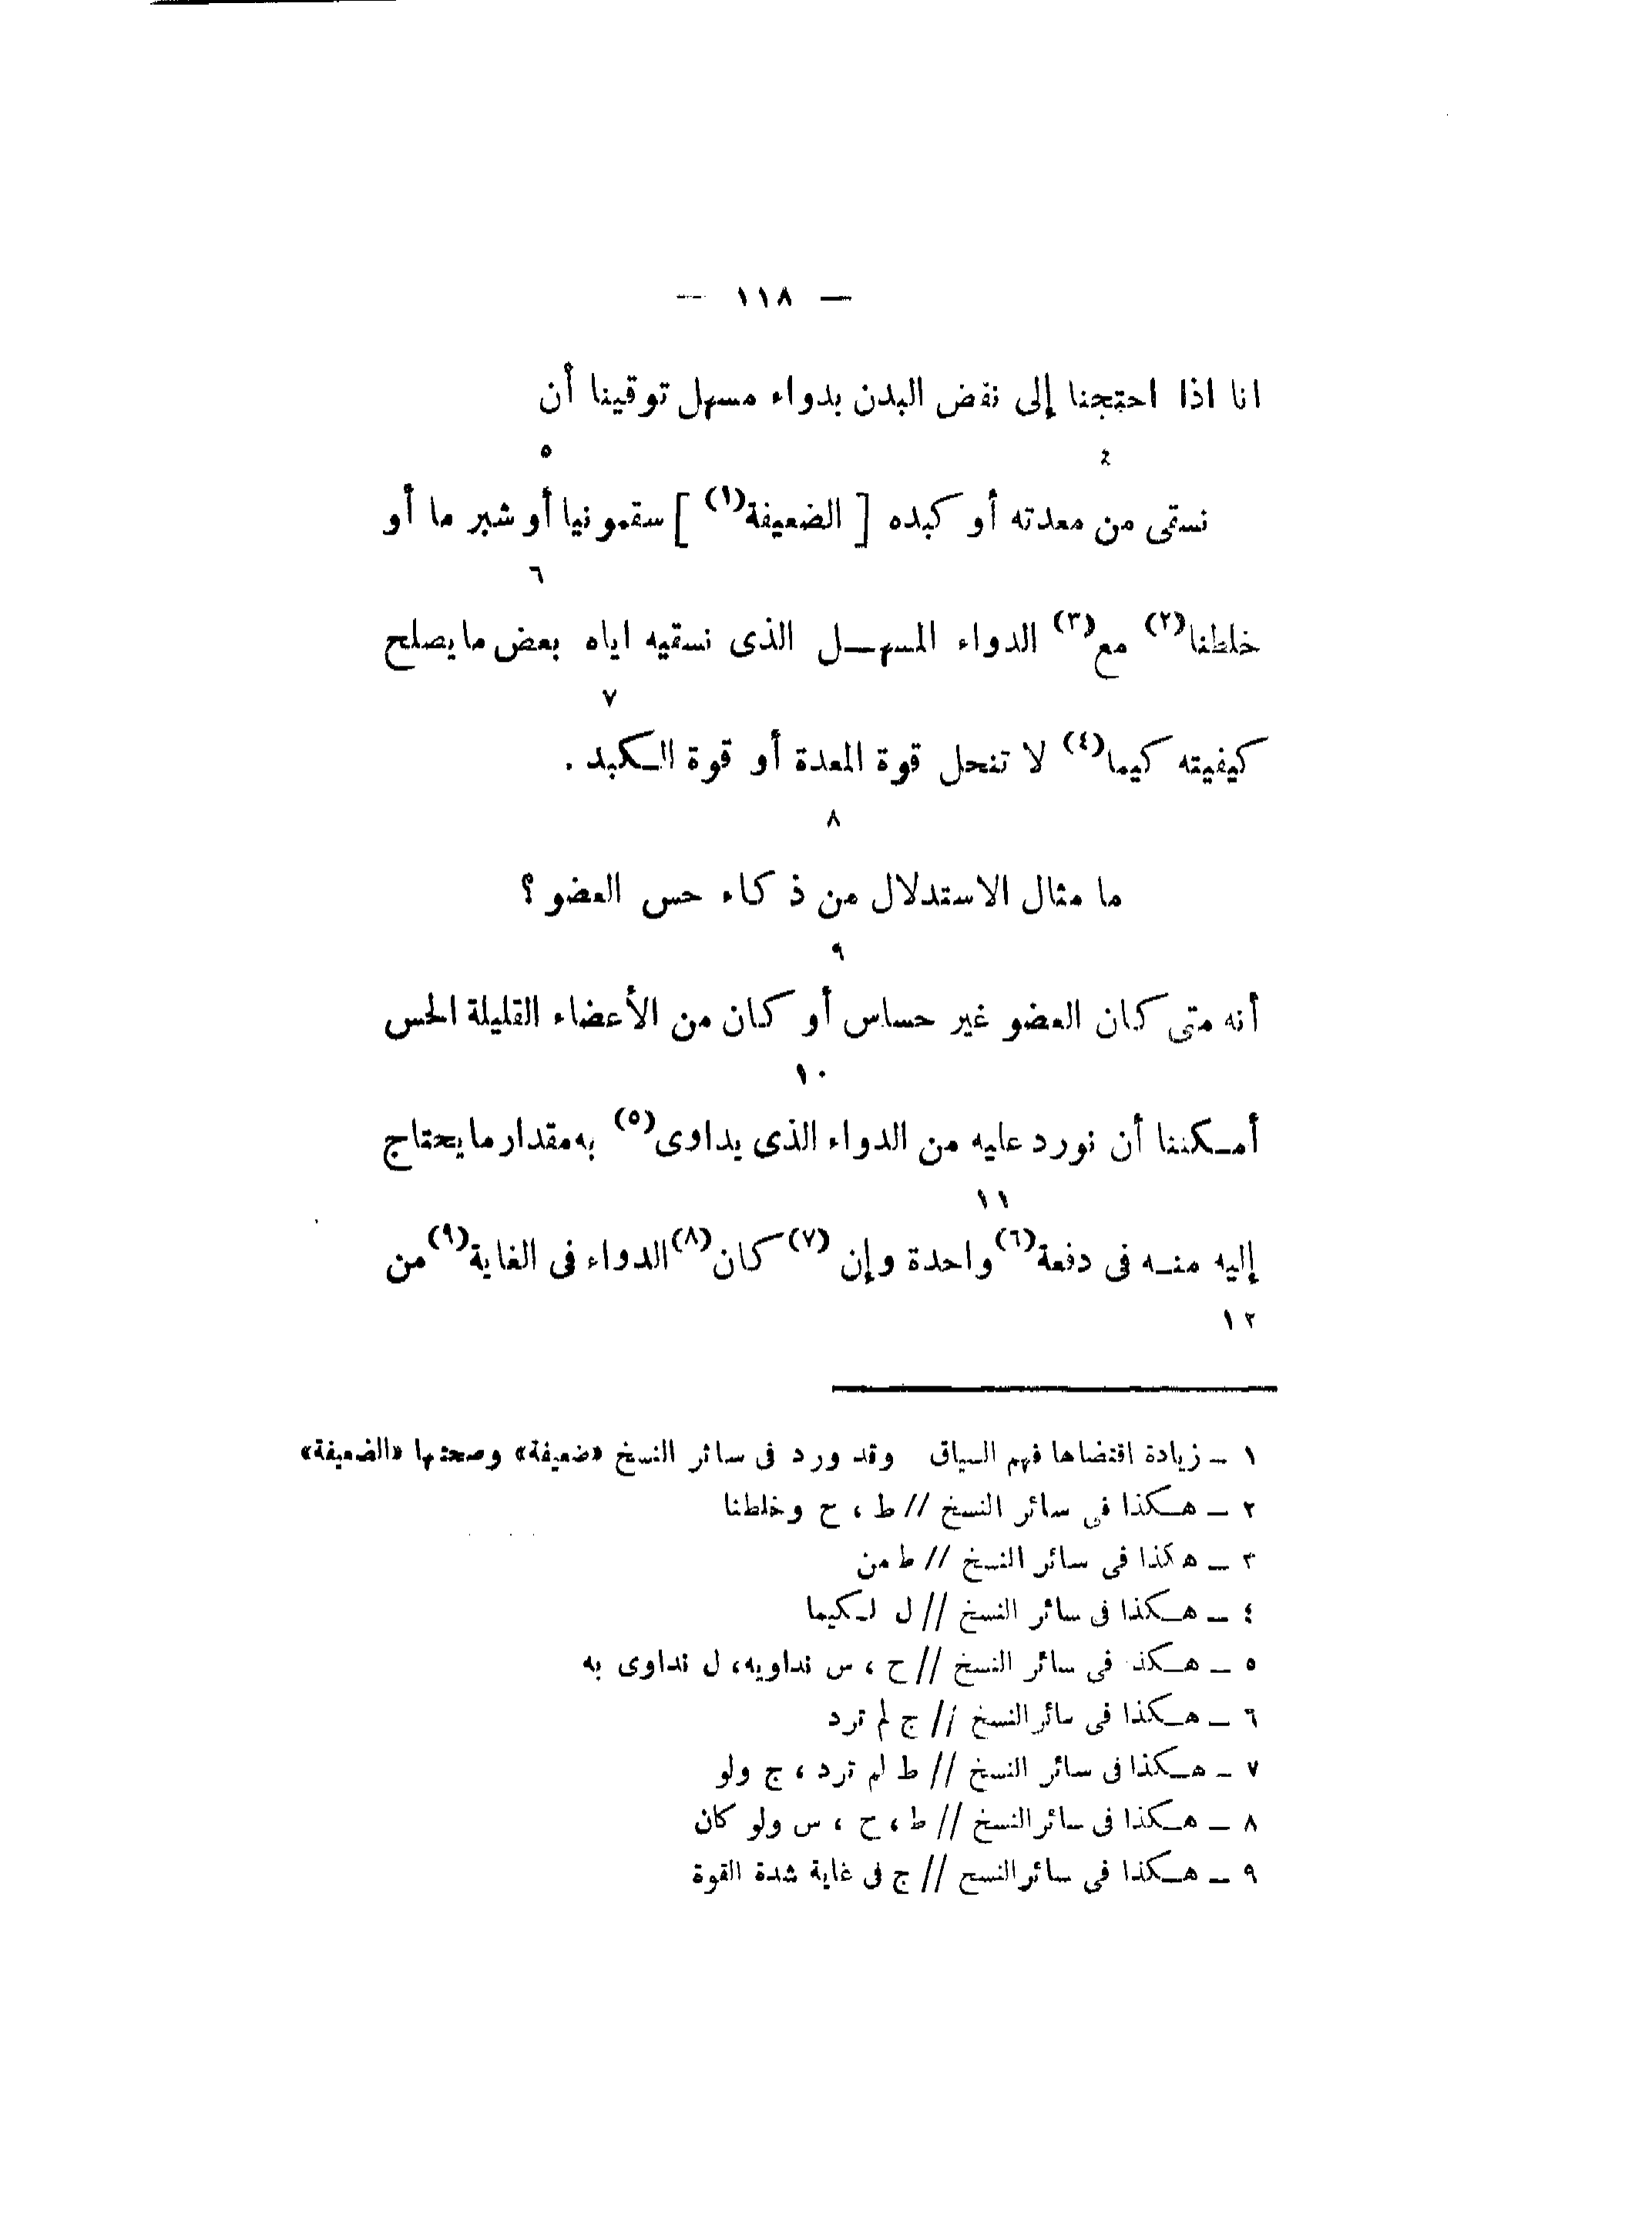 — ١١٨ —
انا اذا احتجنا إلى نفض البدن بدواء مسهل توقينا أن
٤ ٥
نسقى من معدته أو كبده [ الضعيفة(١) ] سقمونيا أو شبر ما أو
٦
خلطنا(٢) مع(٣) الدواء المسهـل الذى نسقيه اياه بعض ما يصلح
٧
كيفيته كيما(٤) لا تنحل قوة المعدة أو قوة الـكبد .
٨
ما مثال الاستدلال من ذكاء حس العضو ؟
٩
أنه متى كان العضو غير حساس أو كان من الأعضاء القليلة الحس
١٠
أمـكننا أن نورد عليه من الدواء الذى يداوى(٥) به مقدار ما يحتاج
١١
إليه منـه فى دفعة(٦) واحدة وإن(٧) كان(٨) الدواء فى الغاية(٩) من
١٢
١ ــ زيادة اقتضاها فهم السياق وقد ورد فى سائر النسخ «ضعيفة» وصحتها «الضعيفة»
٢ ــ هـكذا فى سائر النسخ // ط ، ح وخلطنا
٣ ــ هكذا فى سائر النسخ // ط من
٤ ــ هـكذا فى سائر النسخ // ل لـكيما
٥ ــ هـكذ فى سائر النسخ // ح ، س نداويه، ل نداوى به
٦ ــ هـكذا فى سائر النسخ // ج لم ترد
٧ ــ هـكذا فى سائر النسخ // ط لم ترد ، ج ولو
٨ ــ هـكذا فى سائر النسخ // ط ، ح ، س ولو كان
٩ ــ هـكذا فى سائر النسح // ج فى غاية شدة القوة